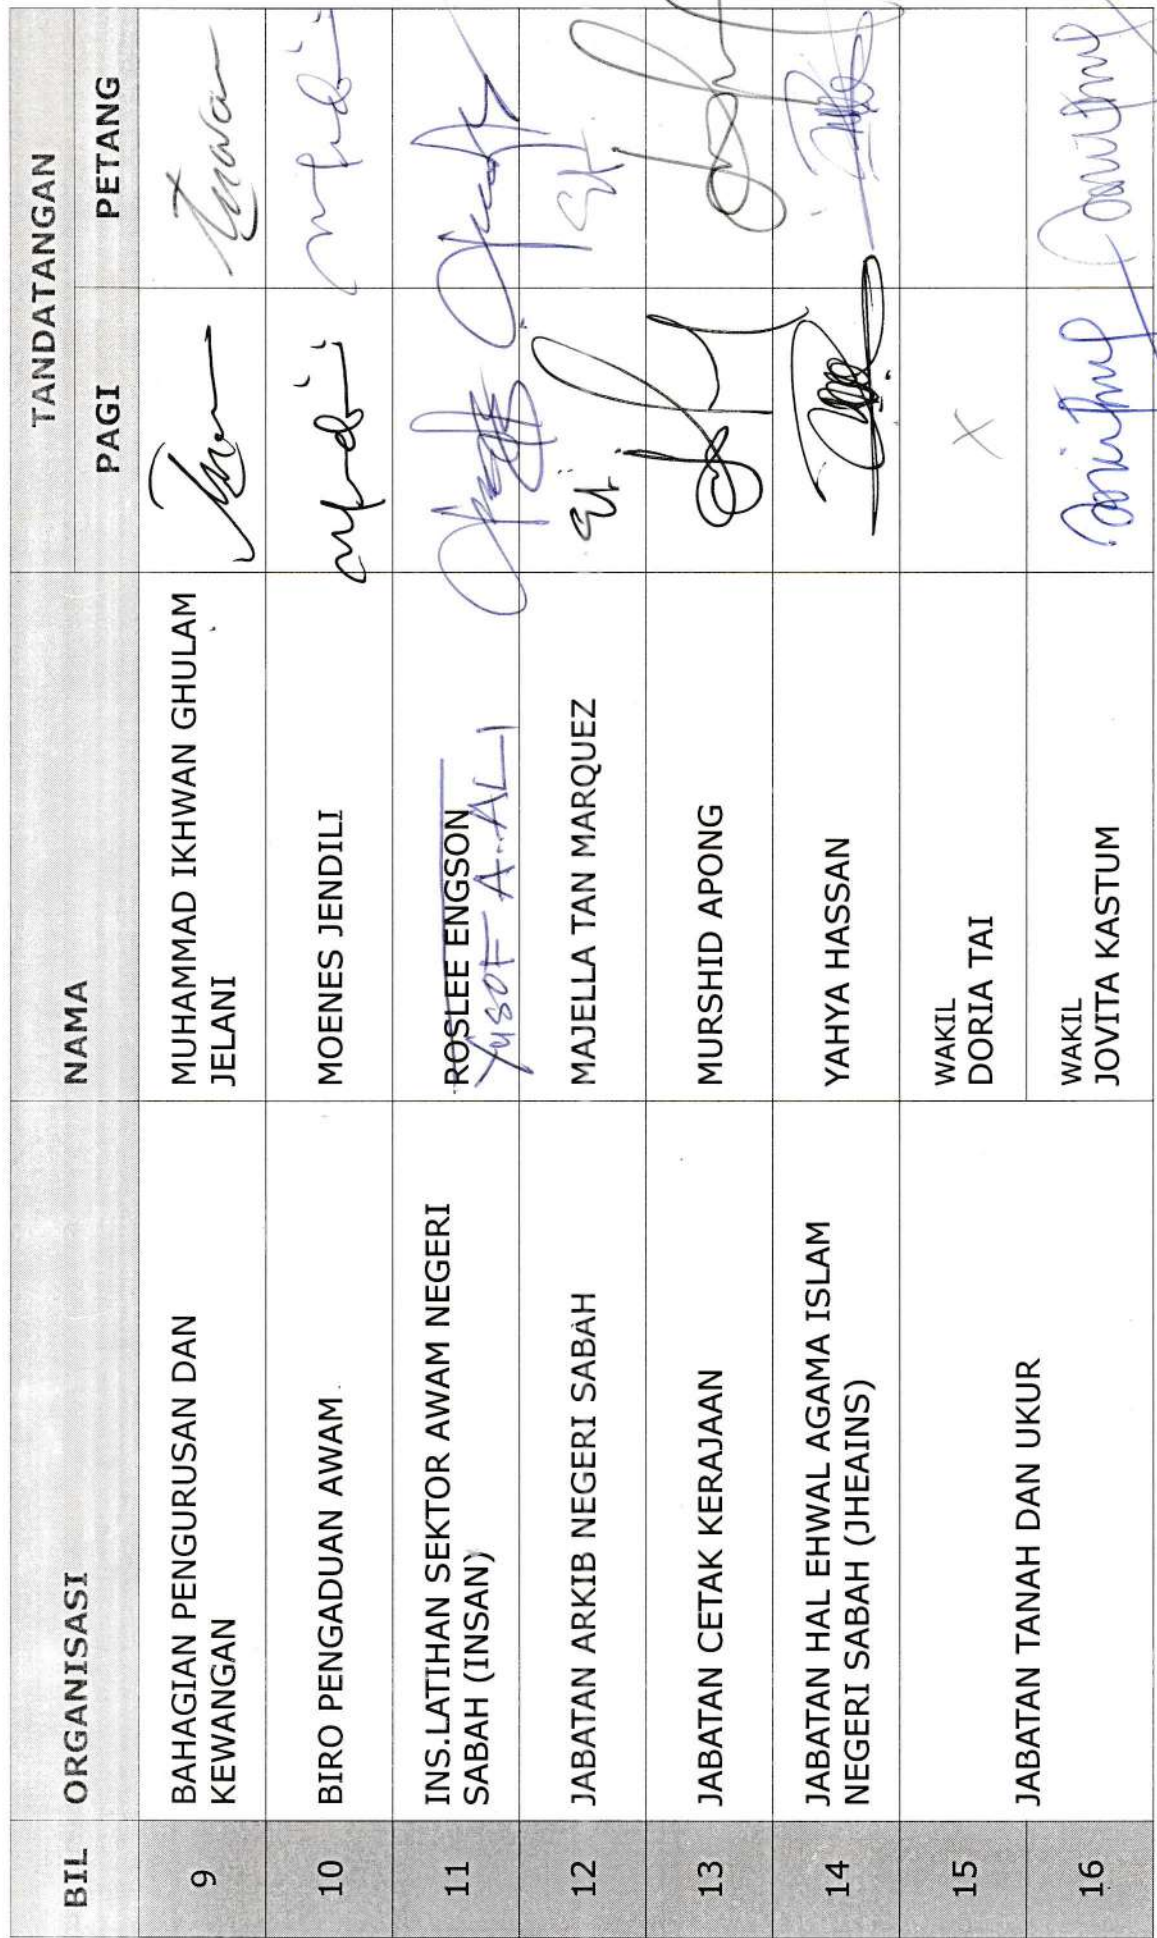 BIL ORGANISASI NAMA TANDATANGAN
PAGI PETANG
9 BAHAGIAN PENGURUSAN DAN KEWANGAN MUHAMMAD IKHWAN GHULAM JELANI
10 BIRO PENGADUAN AWAM MOENES JENDILI
11 INS.LATIHAN SEKTOR AWAM NEGERI SABAH (INSAN) ROSLEE ENGSON
YUSOF A. ALI
12 JABATAN ARKIB NEGERI SABAH MAJELLA TAN MARQUEZ
13 JABATAN CETAK KERAJAAN MURSHID APONG
14 JABATAN HAL EHWAL AGAMA ISLAM NEGERI SABAH (JHEAINS) YAHYA HASSAN
15 JABATAN TANAH DAN UKUR WAKIL DORIA TAI X
16 WAKIL JOVITA KASTUM